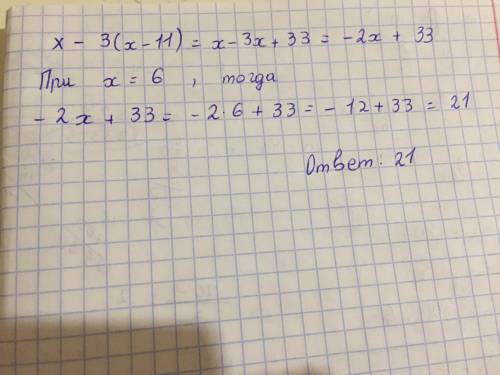 x - 3(x-11) = x-3x+33 = -2x + 33
При x = 6 , тогда
-2x + 33 = -2·6 + 33 = -12+33 = 21
Ответ: 21